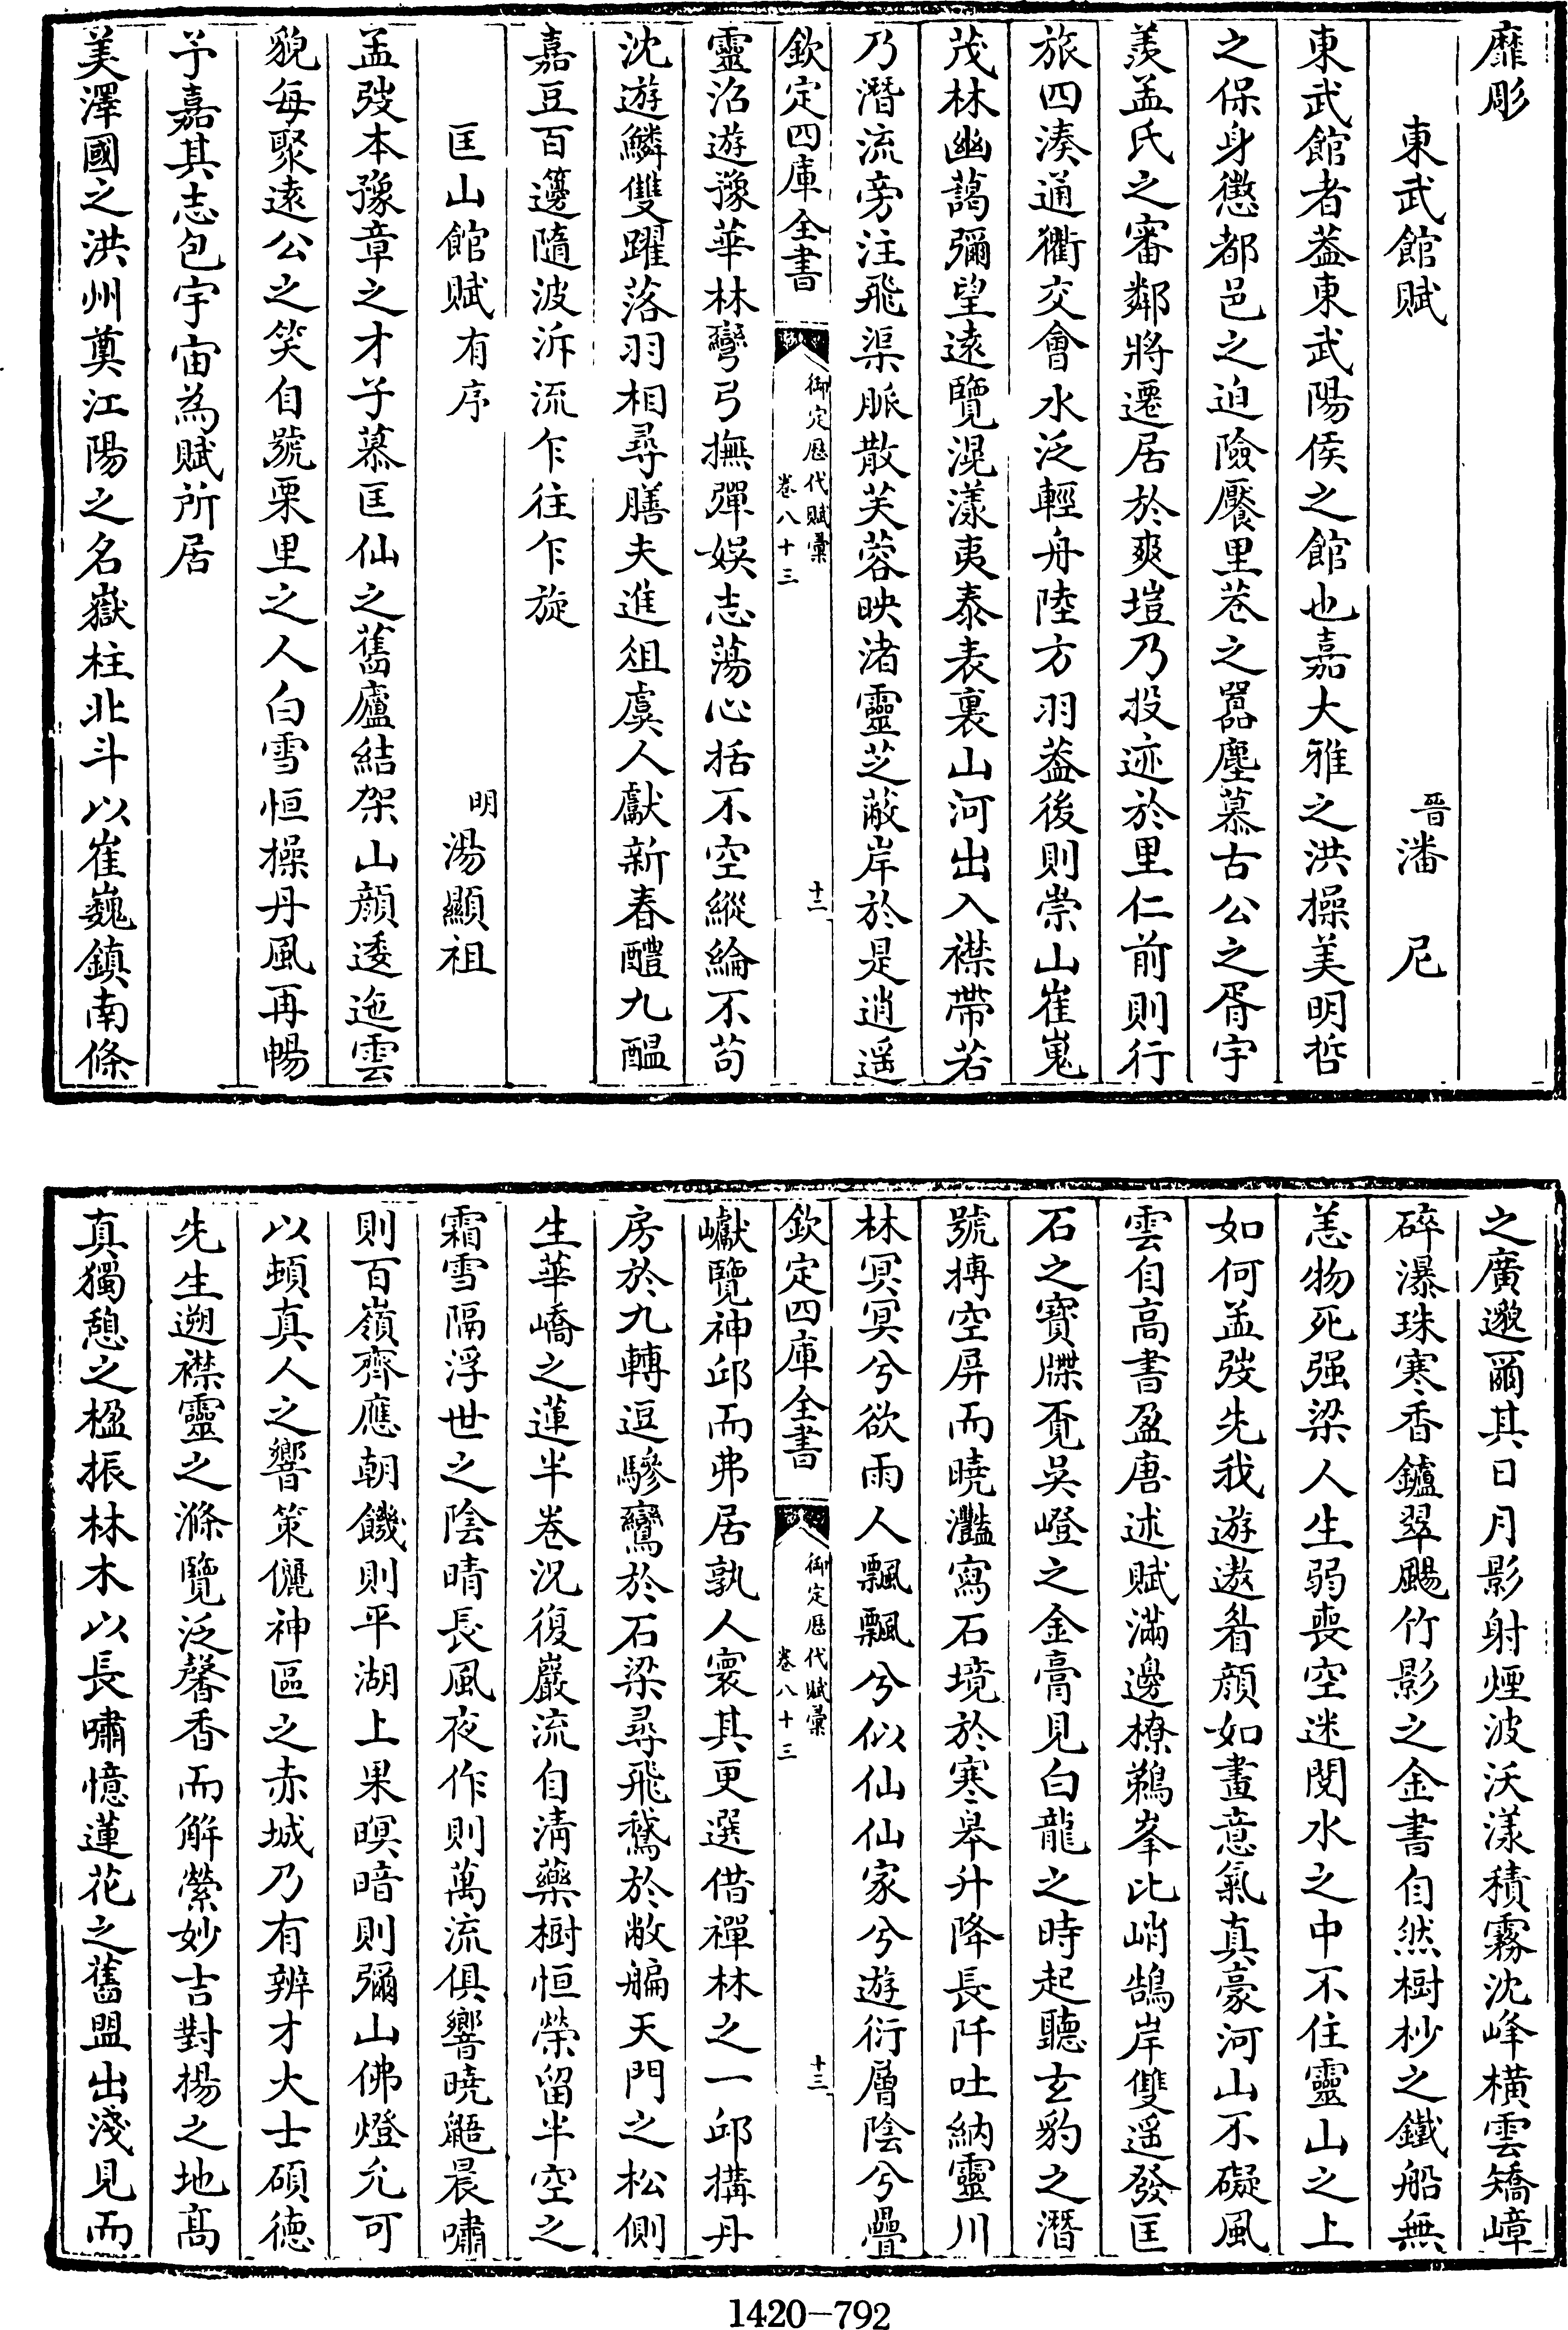 靡彫
東武館賦　晉潘尼
東武館者葢東武陽侯之館也嘉大雅之洪操美明哲
之保身懲都邑之迫險饜里巷之囂塵慕古公之胥宇
羡孟氏之審鄰將遷居於爽塏乃投迹於里仁前則行
旅四湊通衢交會水泛輕舟陸方羽葢後則崇山崔嵬
茂林幽藹彌望遠覽滉漾夷泰表裏山河出入襟帶若
乃潛流旁注飛渠脈散芙蓉映渚靈芝蔽岸於是逍遥
欽定四庫全書　御定歴代賦彙　卷八十三　十二
靈沼遊豫華林彎弓撫彈娛志蕩心括不空縱綸不苟
沈遊鱗雙躍落羽相尋膳夫進俎虞人獻新春醴九醖
嘉豆百籩隨波泝流乍往乍旋
匡山館賦有序　明湯顯祖
孟弢本豫章之才子慕匡仙之舊廬結架山顔逶迤雲
貌每聚遠公之笑自號栗里之人白雪恒操丹風再暢
予嘉其志包宇宙為賦所居
美澤國之洪州奠江陽之名嶽柱北斗以崔巍鎮南條
之廣邈爾其日月影射煙波沃漾積霧沈峰橫雲矯嶂
碎瀑珠寒香鑪翠颺竹影之金書自然樹杪之鐵船無
恙物死强梁人生弱喪空迷閱水之中不住靈山之上
如何孟弢先我遊遨看顔如畫意氣真豪河山不礙風
雲自高書盈唐述賦滿邊橑鵜峯比峭鵠岸雙遥發匡
石之寶牒覔吳嶝之金膏見白龍之時起聽玄豹之潛
號摶空屏而曉灩寫石境於寒皋升降長阡吐納靈川
林冥冥兮欲雨人飄飄兮似仙仙家兮遊衍層陰兮疊
欽定四庫全書　御定歴代賦彙　卷八十三　十三
巘覽神邱而弗居孰人寰其更選借禪林之一邱搆丹
房於九轉逗驂鸞於石梁尋飛鵞於敝艑天門之松側
生華嶠之蓮半卷況復巖流自淸藥樹恒榮留半空之
霜雪隔浮世之陰晴長風夜作則萬流俱響曉鼯晨嘯
則百嶺齊應朝饑則平湖上果暝暗則彌山佛燈允可
以頓真人之響策儷神區之赤城乃有辨才大士碩德
先生遡襟靈之滌覽泛馨香而解縈妙吉對揚之地髙
真獨憩之楹振林木以長嘯憶蓮花之舊盟出淺見而
1420-792